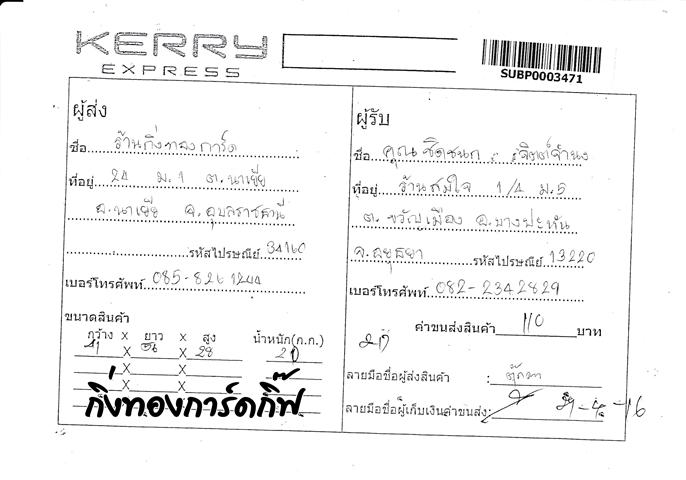 KERRY
EXPRESS
SUBP0003471
ผู้ส่ง
ชื่อ ร้านกิ่งทองการ์ด
ที่อยู่ 24 ม.1 ต.นาเยีย
อ.นาเยีย จ.อุบลราชธานี
รหัสไปรษณีย์ 34160
เบอร์โทรศัพท์ 085-826 1244
ขนาดสินค้า
กว้าง X ยาว X สูง น้ำหนัก(ก.ก.)
X X 28
X X
X X
กิ่งทองการ์ดกิ๊ฟ
ผู้รับ
ชื่อ คุณ ชิดชนก จิตต์จำนง
ที่อยู่ ร้านสมใจ 1/4 ม.5
ต. ขวัญเมือง อ.บางปะหัน
จ.อยุธยา รหัสไปรษณีย์ 13220
เบอร์โทรศัพท์ 082-2342829
ค่าขนส่งสินค้า 110 บาท
ลายมือชื่อผู้ส่งสินค้า : ตุ๊กตา
ลายมือชื่อผู้เก็บเงินค่าขนส่ง: